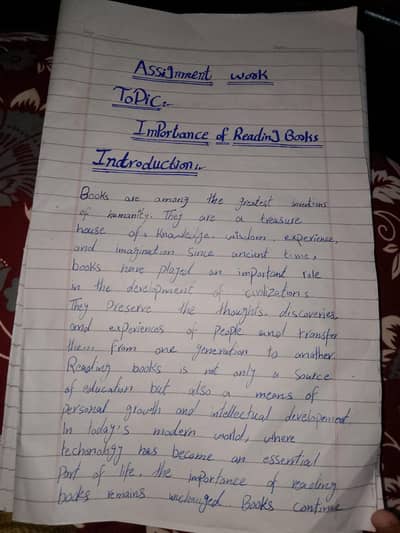 Assignment work
Topic:-
Importance of Reading Books
Introduction:-
Books are among the greatest inventions
of humanity. They are a treasure
house of knowledge, wisdom, experience,
and imagination. Since ancient time,
books have played an important role
in the development of civilizations.
They preserve the thoughts, discoveries,
and experiences of people and transfer
them from one generation to another.
Reading books is not only a source
of education but also a means of
personal growth and intellectual development
In today's modern world, where
technology has become an essential
part of life, the importance of reading
books remains unchanged. Books continue